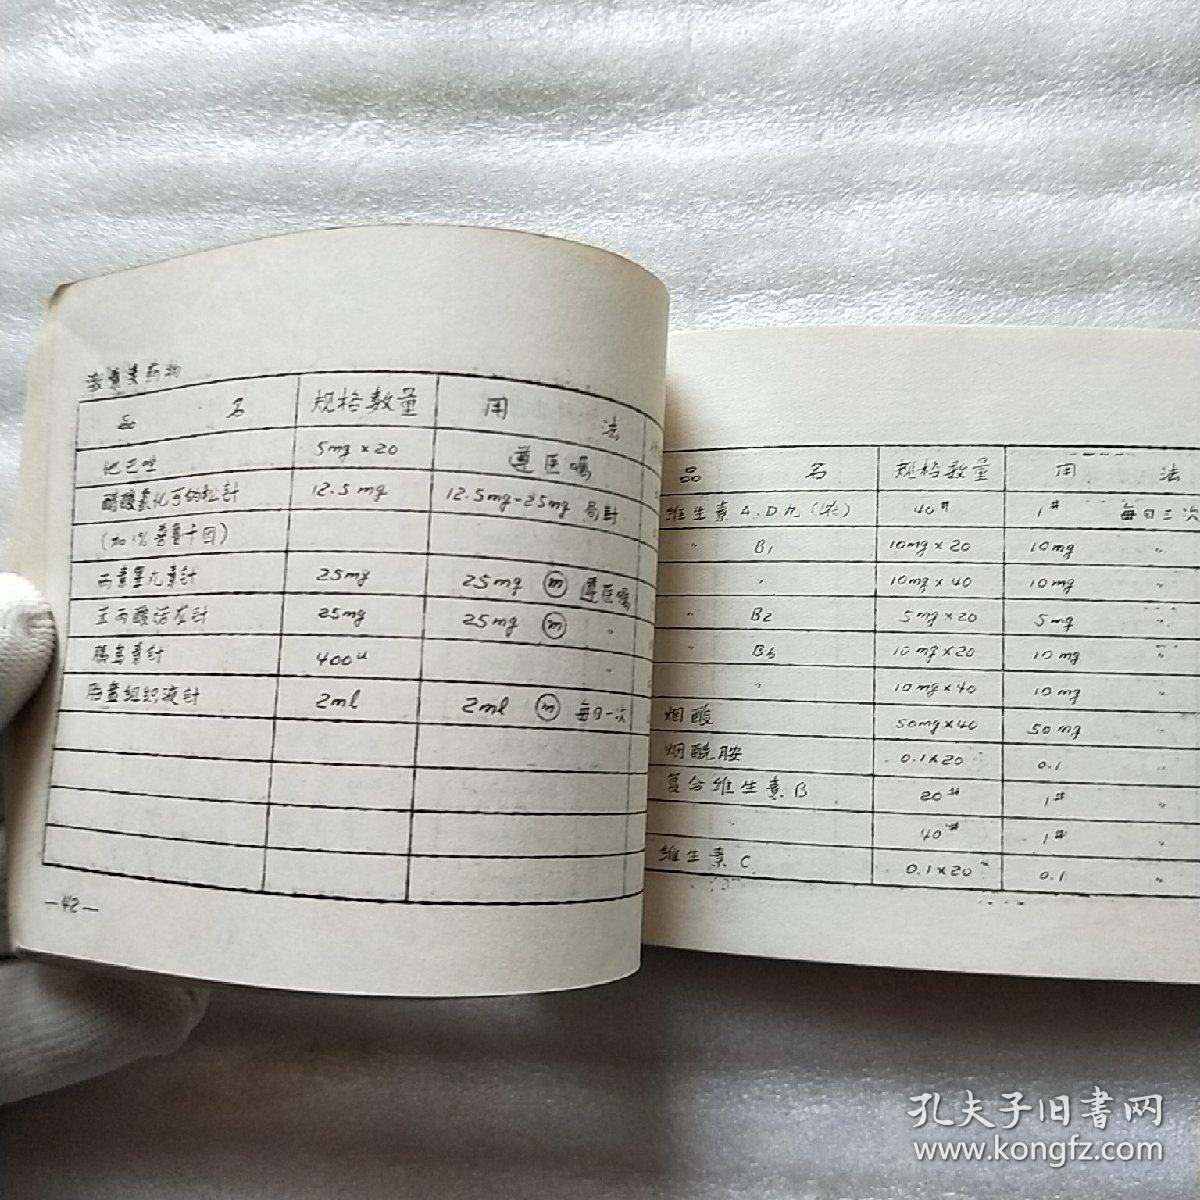 激素类药物
品 名 规格数量 用 法
他巴唑 5mg×20 遵医嘱
醋酸氢化可的松针 12.5mg 12.5mg-25mg 局封
(加1%普鲁卡因)
丙酸睪丸素针 25mg 25mg ⓜ 遵医嘱
苯丙酸诺龙针 25mg 25mg ⓜ 〃
胰岛素针 400u 〃
胎盘组织液针 2ml 2ml ⓜ 每日一次
—42—
品 名 规格数量 用 法
维生素A.D丸(浓) 40# 1# 每日三次
〃 B1 10mg×20 10mg 〃
〃 10mg×40 10mg 〃
〃 B2 5mg×20 5mg 〃
〃 B6 10mg×20 10mg 〃
〃 10mg×40 10mg 〃
烟酸 50mg×40 50mg 〃
烟酰胺 0.1×20 0.1 〃
复合维生素B 20# 1# 〃
〃 40# 1# 〃
维生素C 0.1×20 0.1 〃
孔夫子旧书网
www.kongfz.com